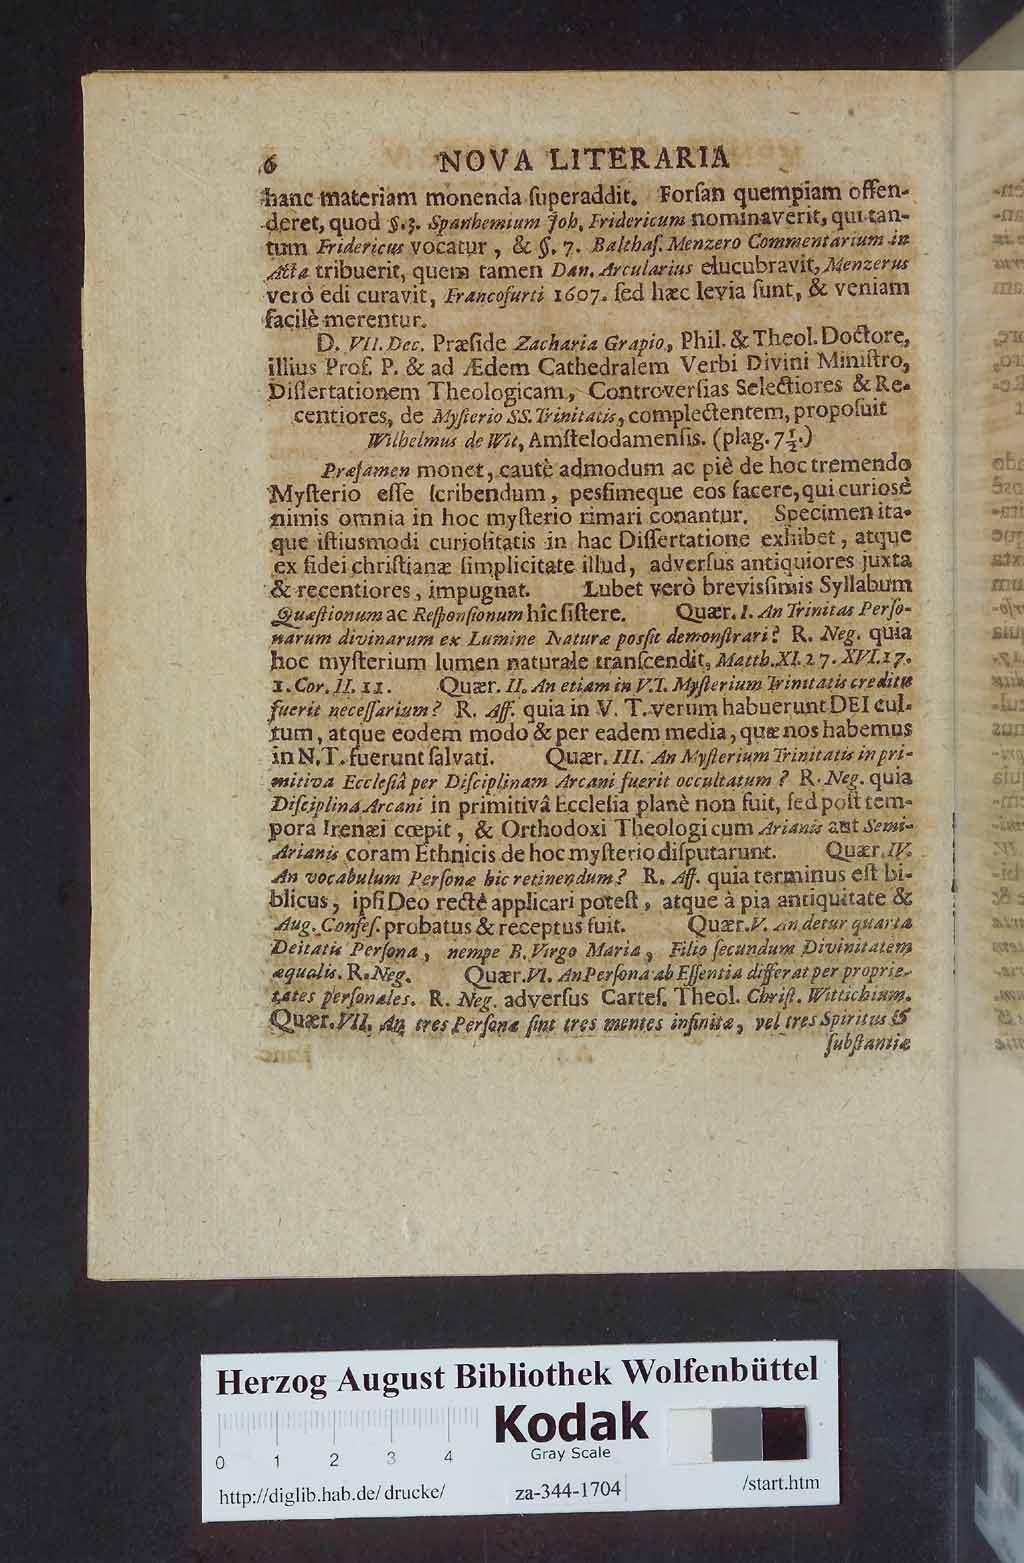 6 NOVA LITERARIA
hanc materiam monenda ſuperaddit. Forſan quempiam offen-
deret, quod §.3. Spanhemium Joh. Fridericum nominaverit, qui tan-
tum Fridericus vocatur, & §. 7. Balthaſ. Menzero Commentarium in
Acta tribuerit, quem tamen Dan. Arcularius elucubravit, Menzerus
verò edi curavit, Francofurti 1607. ſed hæc levia ſunt, & veniam
facilè merentur.
D. VII. Dec. Præſide Zacharia Grapio, Phil. & Theol. Doctore,
illius Prof. P. & ad Ædem Cathedralem Verbi Divini Miniſtro,
Diſſertationem Theologicam, Controverſias Selectiores & Re-
centiores, de Myſterio SS. Trinitatis, complectentem, propoſuit
Wilhelmus de Wit, Amſtelodamenſis. (plag. 7½.)
Præfamen monet, cautè admodum ac piè de hoc tremendo
Myſterio eſſe ſcribendum, pesſimeque eos facere, qui curiosè
nimis omnia in hoc myſterio rimari conantur. Specimen ita-
que iſtiusmodi curioſitatis in hac Diſſertatione exhibet, atque
ex fidei chriſtianæ ſimplicitate illud, adverſus antiquiores juxta
& recentiores, impugnat. Lubet verò brevisſimis Syllabum
Quæſtionum ac Reſponſionum hîc ſiſtere. Quær. I. An Trinitas Perſo-
narum divinarum ex Lumine Naturæ posſit demonſtrari? R. Neg. quia
hoc myſterium lumen naturale tranſcendit, Matth. XI. 27. XVI. 17.
1. Cor. II. 11. Quær. II. An etiam in V.T. Myſterium Trinitatis creditu
fuerit neceſſarium? R. Aff. quia in V. T. verum habuerunt DEI cul-
tum, atque eodem modo & per eadem media, quæ nos habemus
in N. T. fuerunt ſalvati. Quær. III. An Myſterium Trinitatis in pri-
mitiva Eccleſiâ per Diſciplinam Arcani fuerit occultatum? R. Neg. quia
Diſciplina Arcani in primitivâ Eccleſia planè non fuit, ſed poſt tem-
pora Irenæi cœpit, & Orthodoxi Theologi cum Arianis aut Semi-
Arianis coram Ethnicis de hoc myſterio diſputarunt. Quær. IV.
An vocabulum Perſonæ hic retinendum? R. Aff. quia terminus eſt bi-
blicus, ipſi Deo rectè applicari poteſt, atque à pia antiquitate &
Aug. Confeſ. probatus & receptus fuit. Quær. V. An detur quarta
Deitatis Perſona, nempe B. Virgo Maria, Filio ſecundum Divinitatem
æqualis. R. Neg. Quær. VI. An Perſona ab Eſſentia differat per proprie-
tates perſonales. R. Neg. adverſus Carteſ. Theol. Chriſt. Wittichium.
Quær. VII. An tres Perſonæ ſint tres mentes infinitæ, vel tres Spiritus &
ſubſtantiæ
Herzog August Bibliothek Wolfenbüttel
Kodak
Gray Scale
0 1 2 3 4
http://diglib.hab.de/drucke/ za-344-1704 /start.htm